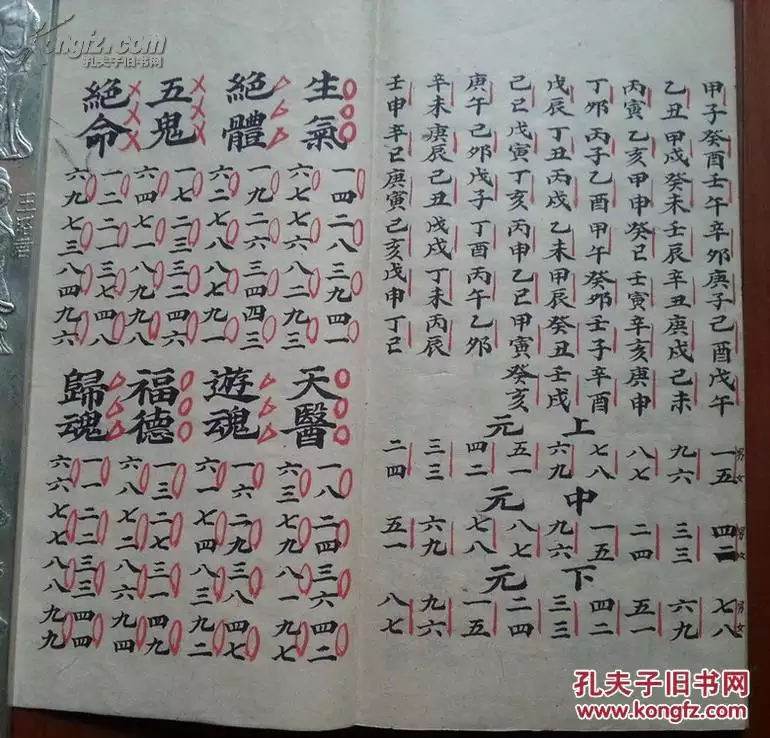 甲子癸酉壬午辛卯庚子己酉戊午
乙丑甲戌癸未壬辰辛丑庚戌己未
丙寅乙亥甲申癸巳壬寅辛亥庚申
丁卯丙子乙酉甲午癸卯壬子辛酉
戊辰丁丑丙戌乙未甲辰癸丑壬戌
己巳戊寅丁亥丙申乙巳甲寅癸亥
庚午己卯戊子丁酉丙午乙卯
辛未庚辰己丑戊戌丁未丙辰
壬申辛巳庚寅己亥戊申丁巳
上元
男女
一五
九六
八七
七八
六九
五一
四二
三三
二四
中元
男女
四二
三三
二四
一五
九六
八七
七八
六九
五一
下元
男女
七八
六九
五一
四二
三三
二四
一五
九六
八七
生氣
一四二八三九四一
六七七六八二九三
絕體
一九二六三四四三
六二七八八七九一
五鬼
一七二三三二四六
六四七一八九九八
絕命
一二二一三七四八
六九七三八四九六
天醫
一八二四三六四二
六三七九八一九七
遊魂
一六二九三八四七
六一七四八三九二
福德
一三二七三一四九
六八七二八六九四
歸魂
一一二二三三四四
六六七七八八九九
Kongfz.com
孔夫子旧书网
孔夫子旧书网
www.kongfz.com